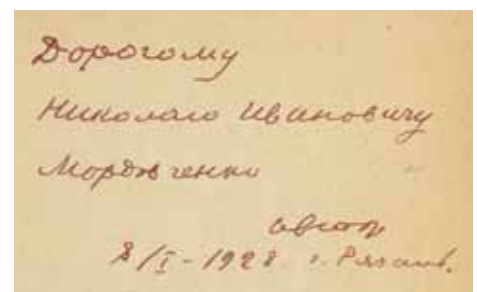 Дорогому
Николаю Ивановичу
Мордовченко
автор
8/I - 1928 г. Рязань.